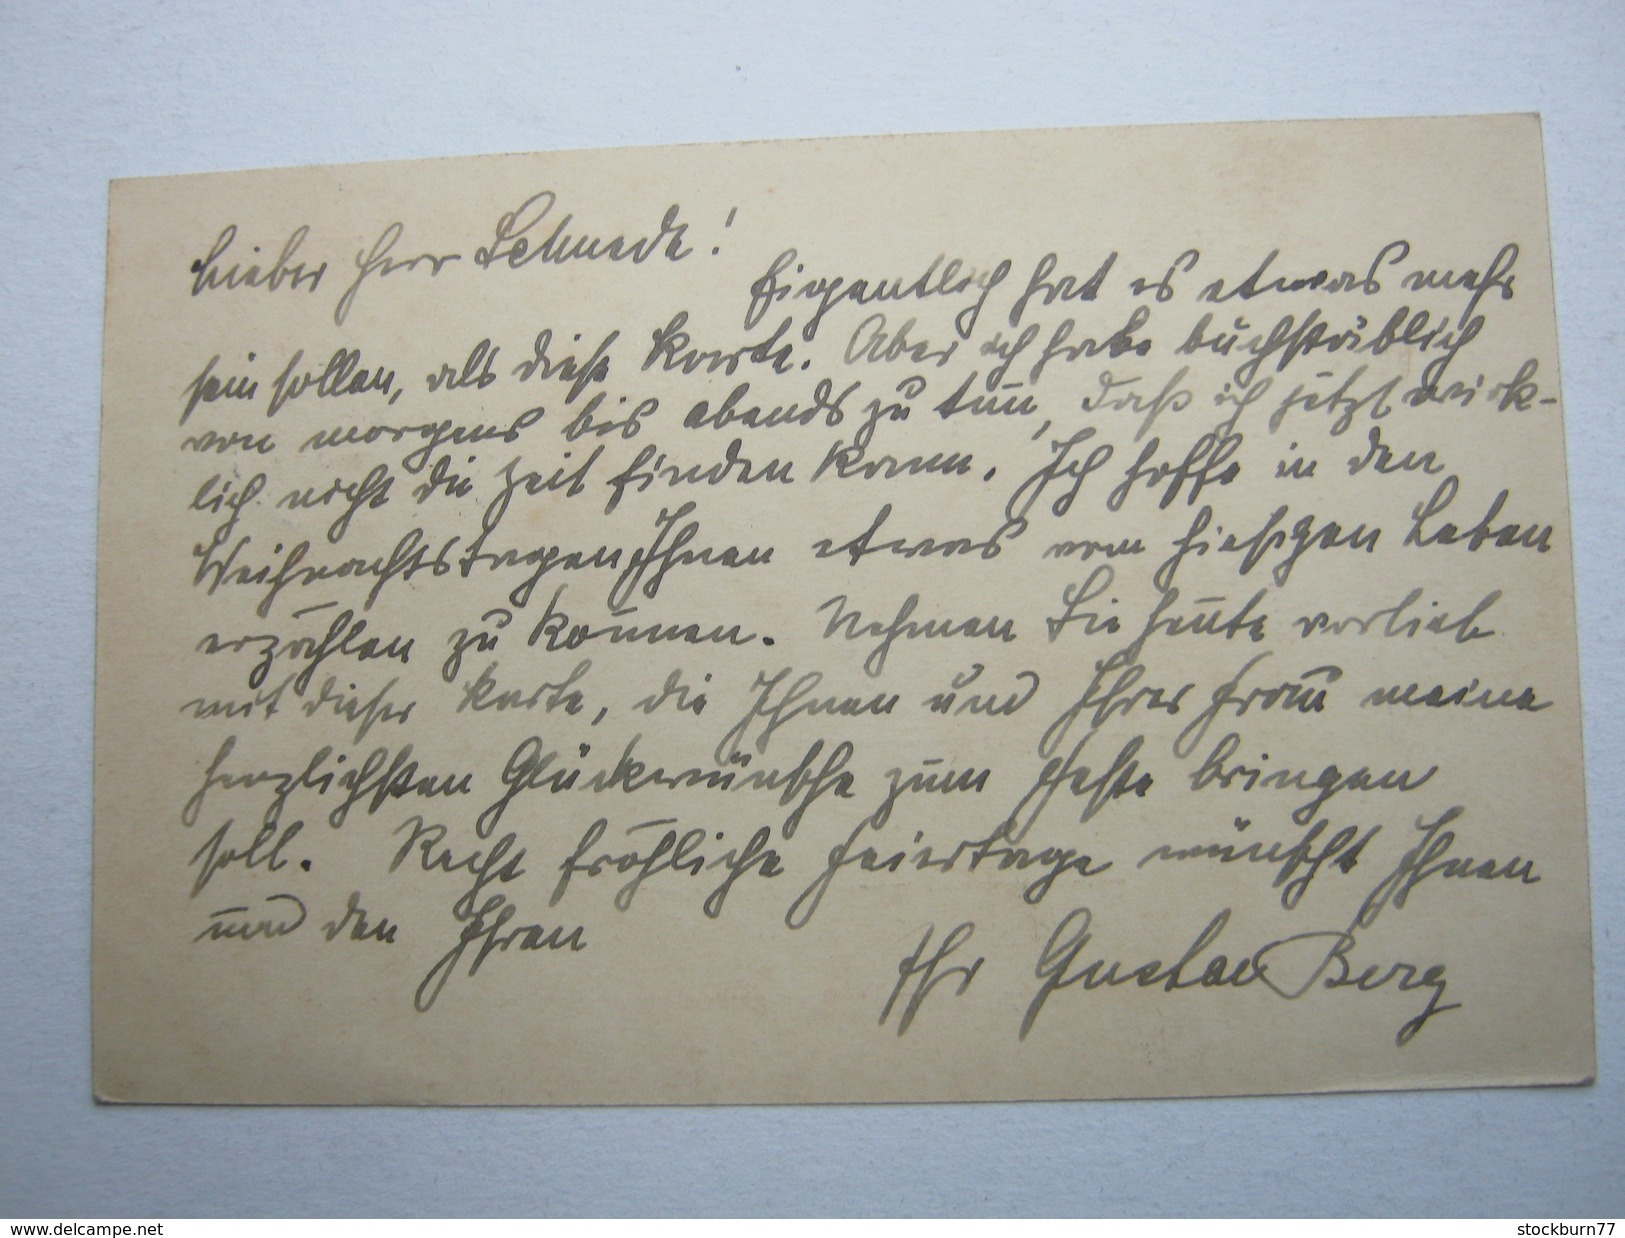 Lieber Herr Schmedt!
Eigentlich hat es etwas mehr
sein sollen, als diese Karte. Aber ich habe buchstäblich
von morgens bis abends zu tun, daß ich jetzt wirk-
lich nicht die Zeit finden kann. Ich hoffe in den
Weihnachtstagen Ihnen etwas vom hiesigen Leben
erzählen zu können. Nehmen Sie heute vorlieb
mit dieser Karte, die Ihnen und Ihrer Frau meine
herzlichsten Glückwünsche zum Feste bringen
soll. Recht fröhliche Feiertage wünscht Ihnen
und den Ihren
Ihr Gustav Berg
www.delcampe.net
stockburn77